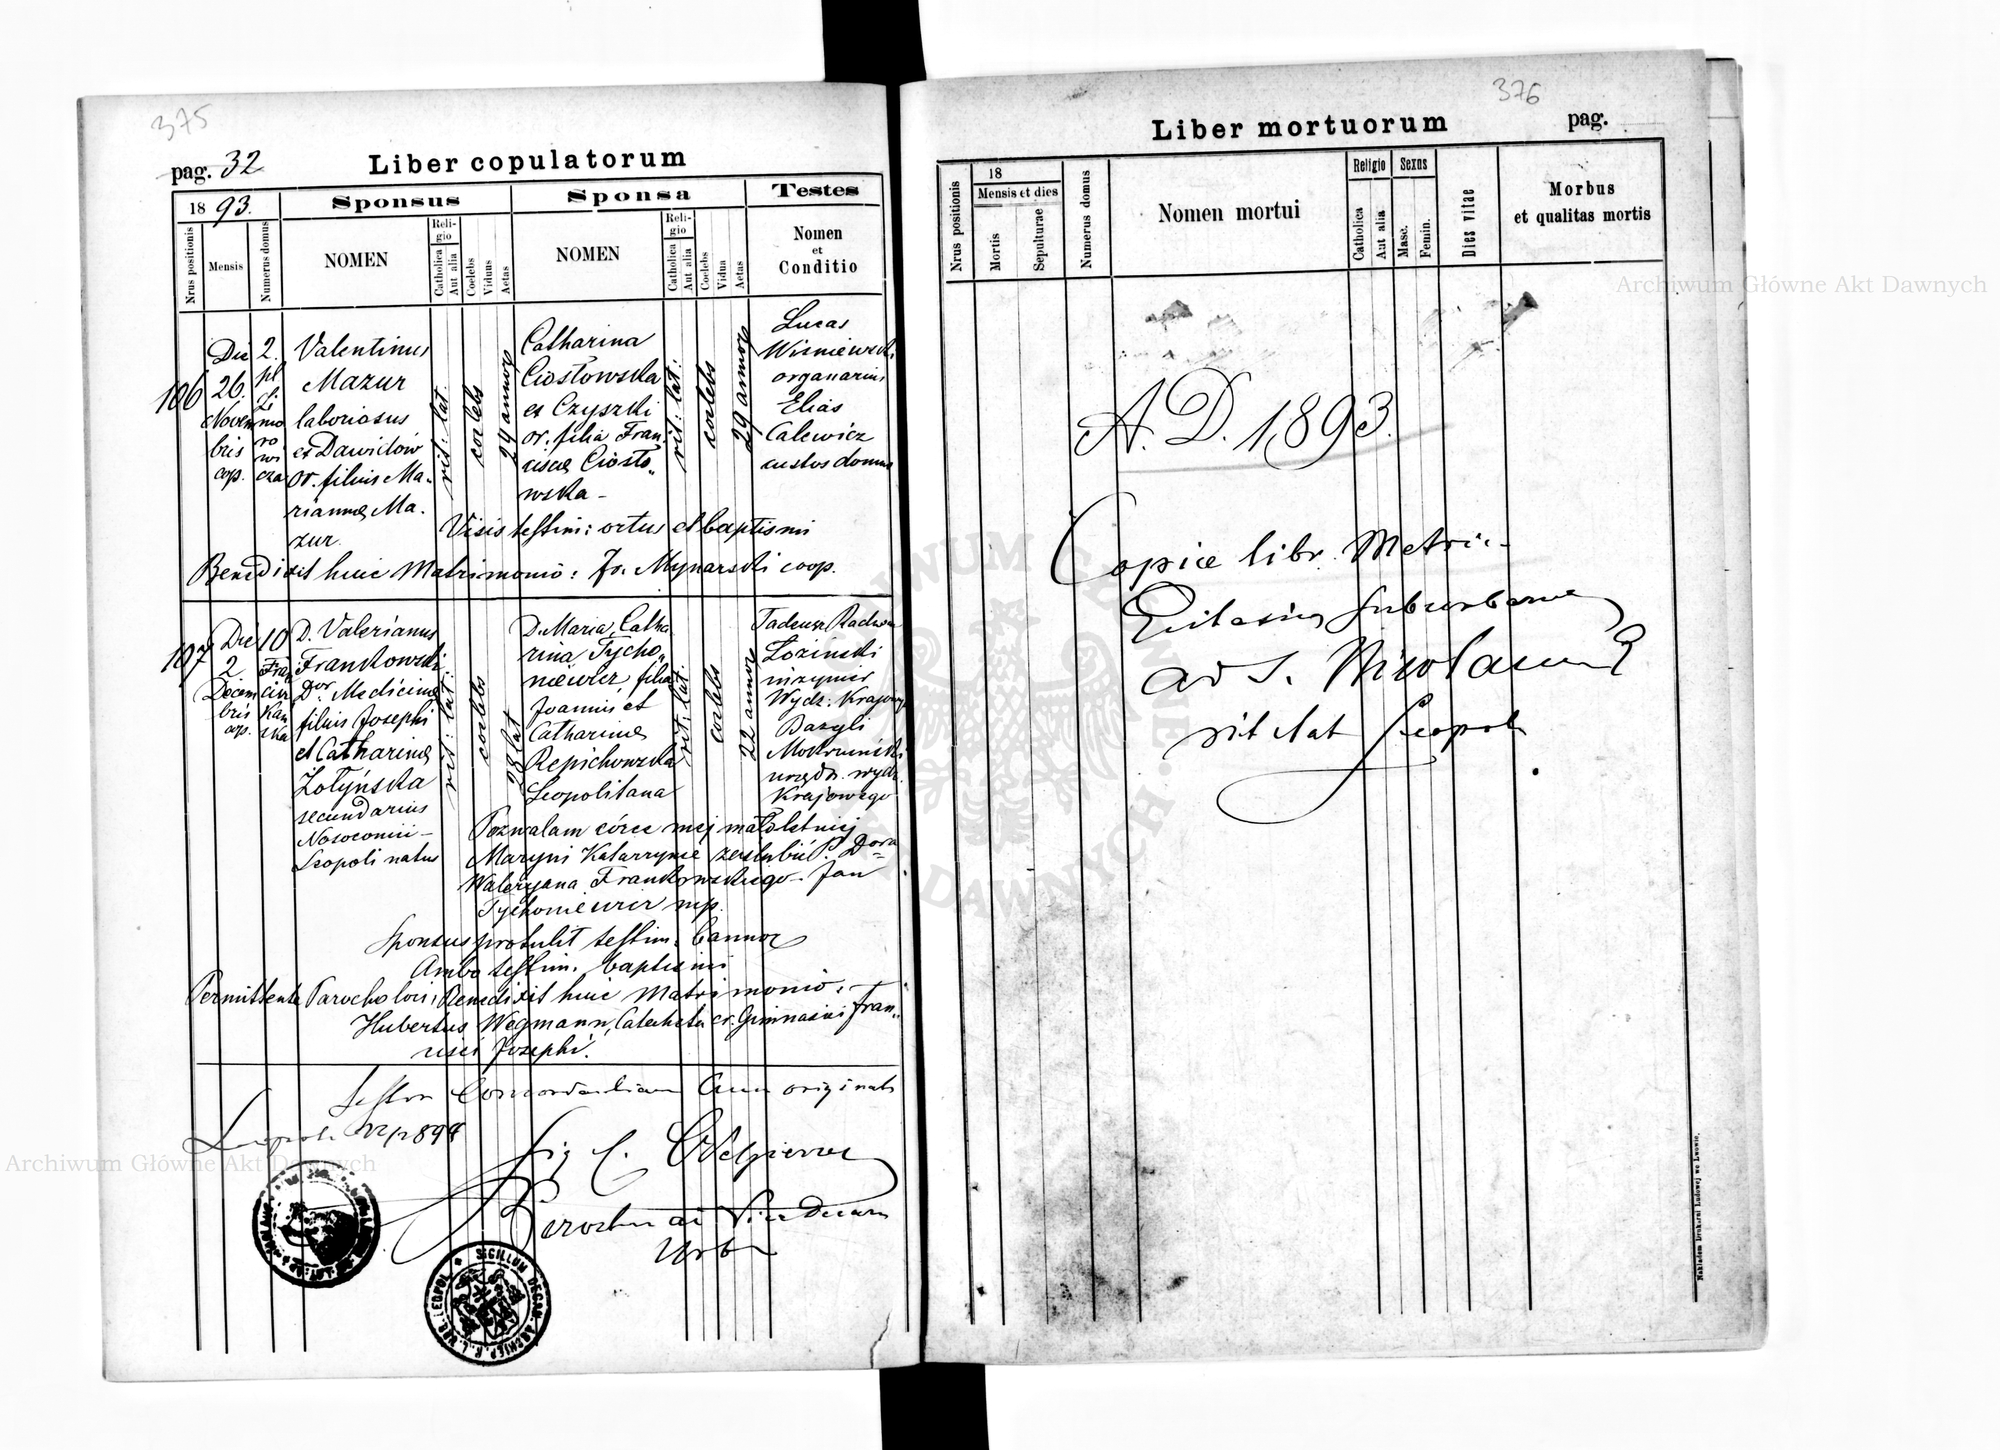 375
pag. 32
Liber copulatorum
1893.
Sponsus
Sponsa
Testes
Nrus positionis
Mensis
Numerus domus
NOMEN
Religio
Catholica
Aut alia
Coelebs
Viduus
Aetas
NOMEN
Religio
Catholica
Aut alia
Coelebs
Vidua
Aetas
Nomen
et
Conditio
106
Die
26.
Novem
bris
cop.
2.
pl.
Valentinus
Mazur
laboriosus
ex Dawidów
or. filius Ma-
riannae Ma-
zur.
rit: lat:
coelebs
24 annor
Catharina
Ciostowska
ex Czyszki
or. filia Fran
ciscae Ciosto„
wska -
rit: lat:
coelebs
29 annor
Lucas
Wiśniewski
organarius
Elias
Calewicz
custos domus
Visis testim: ortus et baptismi
Benedixit huic Matrimonio: Jo. Mynarski coop.
107
Die
2
Decem
bris
cop.
10
Fran
cisz
kań
ska
D. Valerianus
Frankowski
Dor Medicinae
filius Josephi
et Catharinae
Żołyńska
secundarius
Nosocomii -
Leopoli natus
rit: lat:
coelebs
28 lat
D. Maria, Catha
rina Tycho„
niewicz, filia
Joannis et
Catharinae
Repichowska
Leopolitana
rit: lat:
coelebs
22 annor
Tadeusz Radwan
Łoziński
inżynier
Wydz. Krajowy
Bazyli
urzędn. wydz.
Krajowego
Pozwalam córce mej małoletniej
Maryni Katarzynie zaślubić P. Dora
Waleryana Frankowskiego - Jan
Tychoniewicz mp.
Sponsus protulit testim. bannor
Ambo testim. baptismi
Permittente Parocho loci, Benedixit huic Matrimonio:
Hubertus Wegmann, Catecheta cr. Gimnasii Fran„
cisci Josephi.
Testor Concordantiam cum originali
Leopoli
Parochus ac Vicedecanus
Urban
SIGILLUM DECAN. ARCHIEP. R. L. URB. LEOPOL.
376
Liber mortuorum
pag.
Nrus positionis
18
Mensis et dies
Mortis
Sepulturae
Numerus domus
Nomen mortui
Religio
Catholica
Aut alia
Sexus
Masc.
Femin.
Dies vitae
Morbus
et qualitas mortis
A. D. 1893.
Copiae libr. Metric-
Ecclesiae suburbanae
ad S. Nicolaum
rit lat Leopol
Nakładem Drukarni Ludowej we Lwowie.
Archiwum Główne Akt Dawnych
Archiwum Główne Akt Dawnych
ARCHIWUM GŁÓWNE AKT DAWNYCH